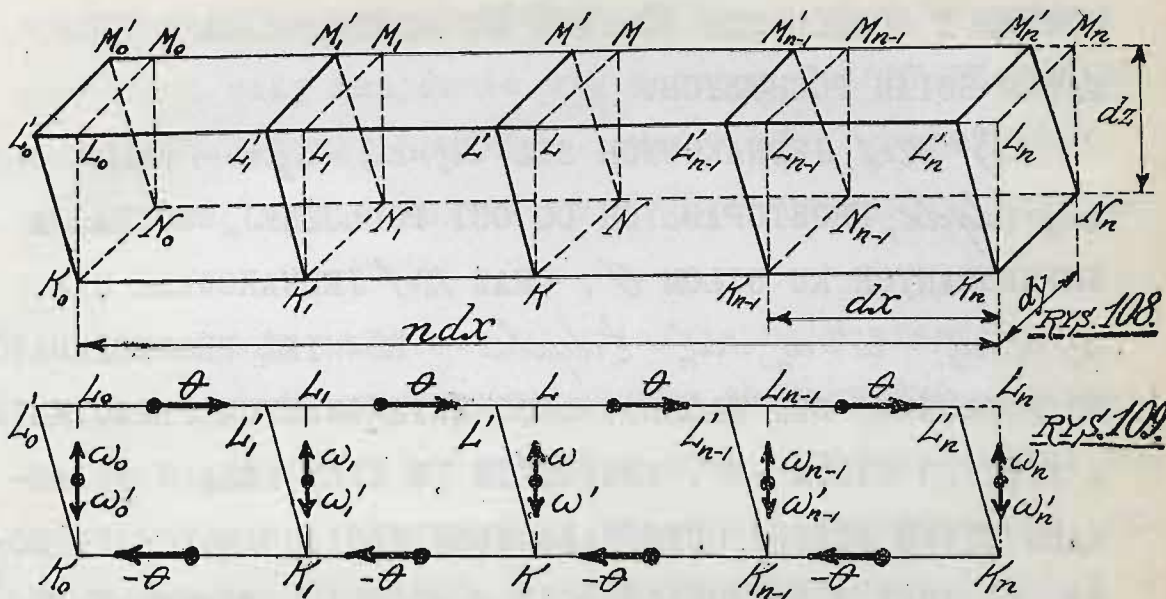 M₀' M₀ M₁' M₁ M' M M'ₙ₋₁ Mₙ₋₁ Mₙ' Mₙ
dz
L₀' L₀ L₁' L₁ L' L L'ₙ₋₁ Lₙ₋₁ Lₙ' Lₙ
N₀ N₁ N Nₙ₋₁ Nₙ
K₀ K₁ K Kₙ₋₁ Kₙ
ndx dx dy
RYS. 108.
L₀' L₀ θ L₁ θ L θ Lₙ₋₁ θ Lₙ
L₁' L' L'ₙ₋₁ Lₙ'
RYS. 109.
ω₀ ω₁ ω ωₙ₋₁ ωₙ
ω₀' ω₁' ω' ω'ₙ₋₁ ωₙ'
K₀ -θ K₁ -θ K -θ Kₙ₋₁ -θ Kₙ